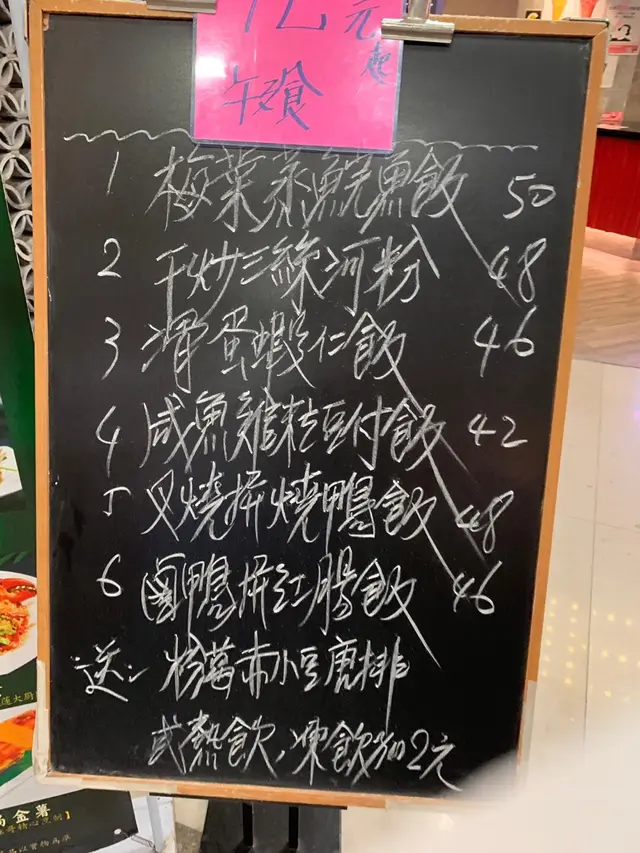 元起
午餐
1 梅菜蒸鯇魚飯 50
2 干炒三絲河粉 48
3 滑蛋蝦仁飯 46
4 咸魚雞粒豆付飯 42
5 叉燒拼燒鴨飯 48
6 鹵鴨拼紅腸飯 46
送: 粉葛赤小豆唐排
或熱飲,凍飲加2元
金薯
品以實物為準